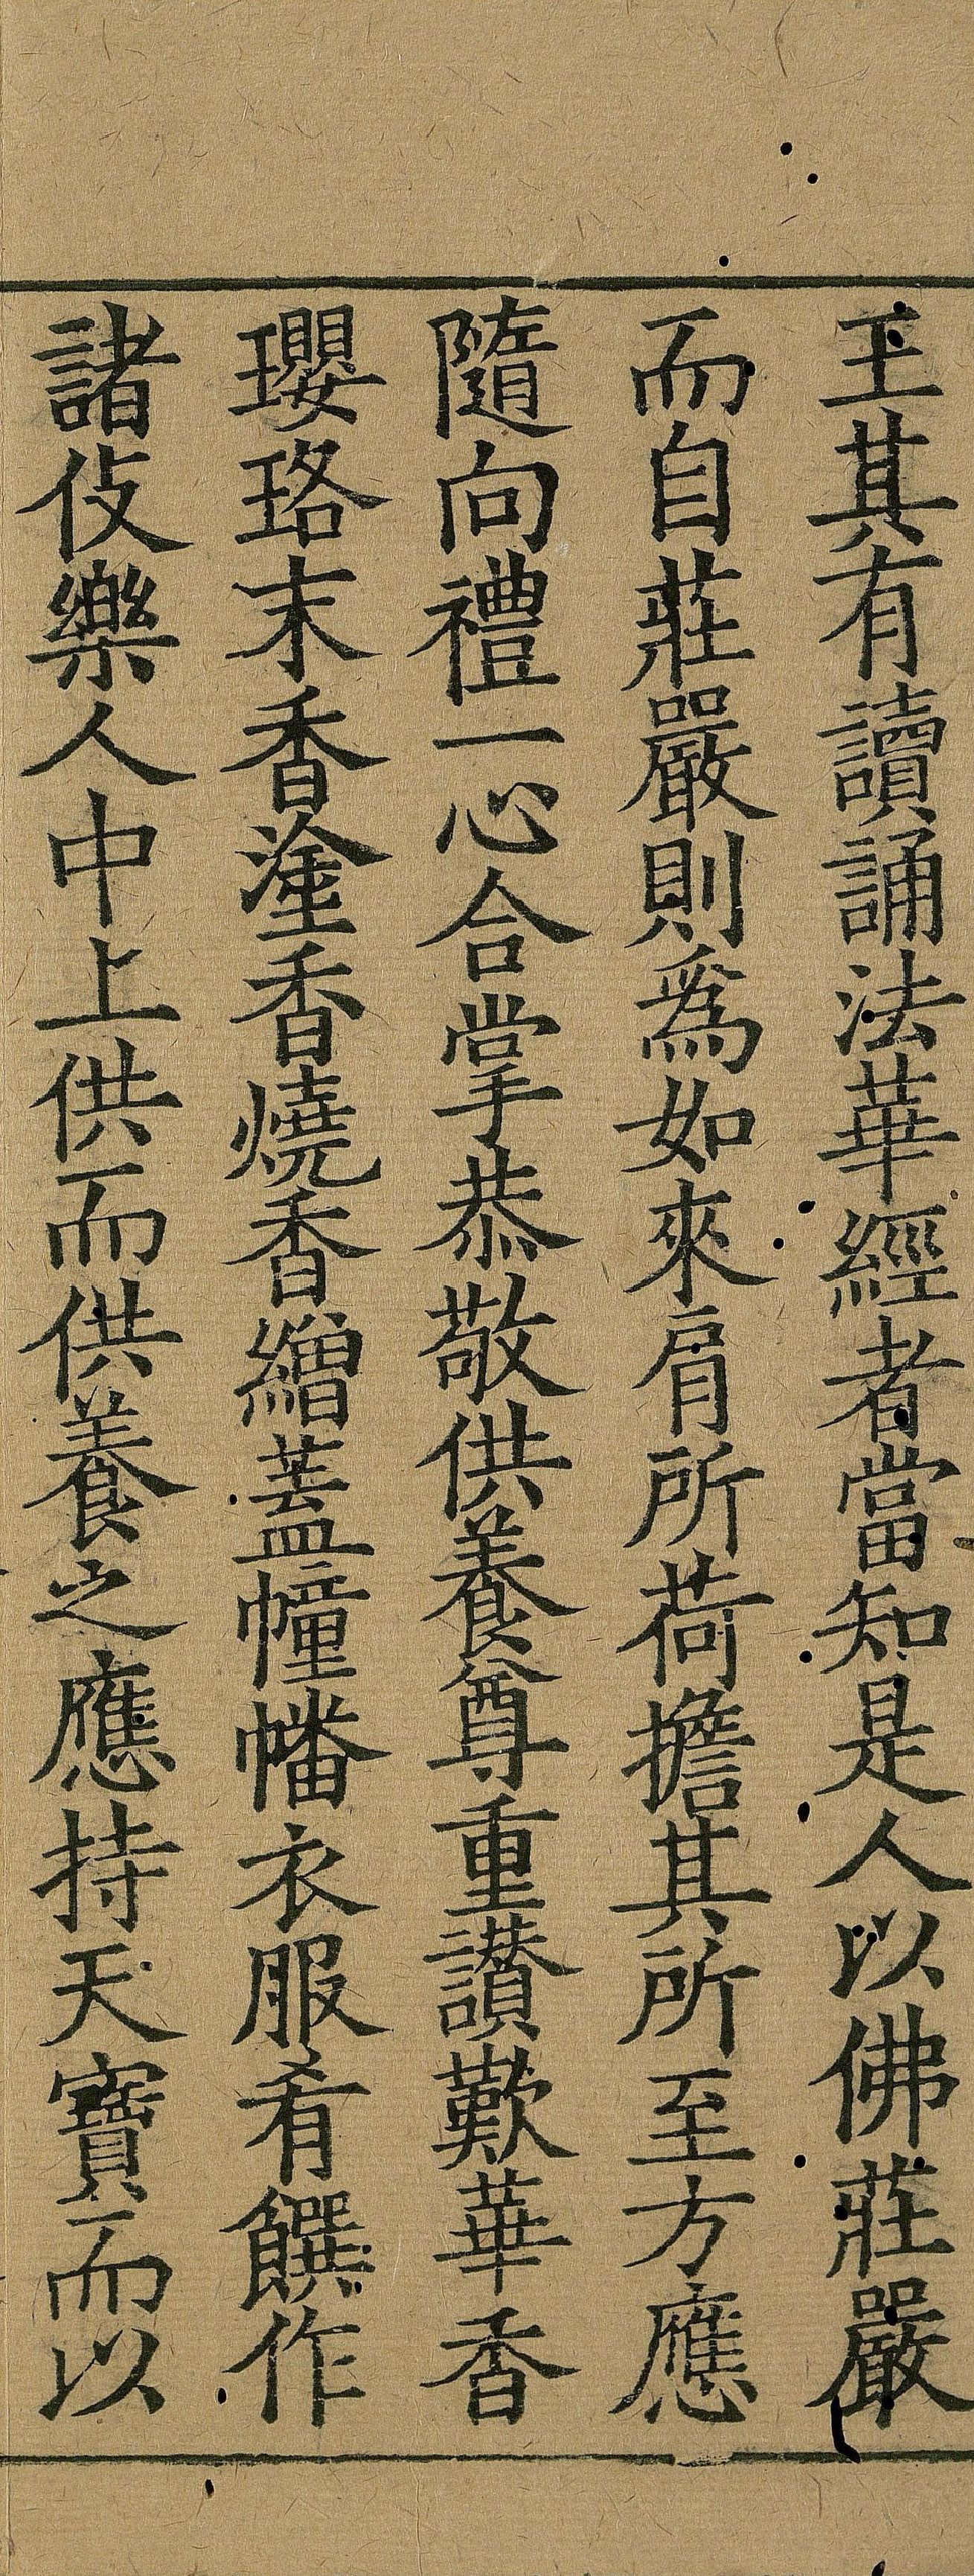 王其有讀誦法華經者當知是人以佛莊嚴
而自莊嚴則爲如來肩所荷擔其所至方應
隨向禮一心合掌恭敬供養尊重讃歎華香
瓔珞末香塗香燒香繒蓋幢幡衣服肴饌作
諸伎樂人中上供而供養之應持天寶而以